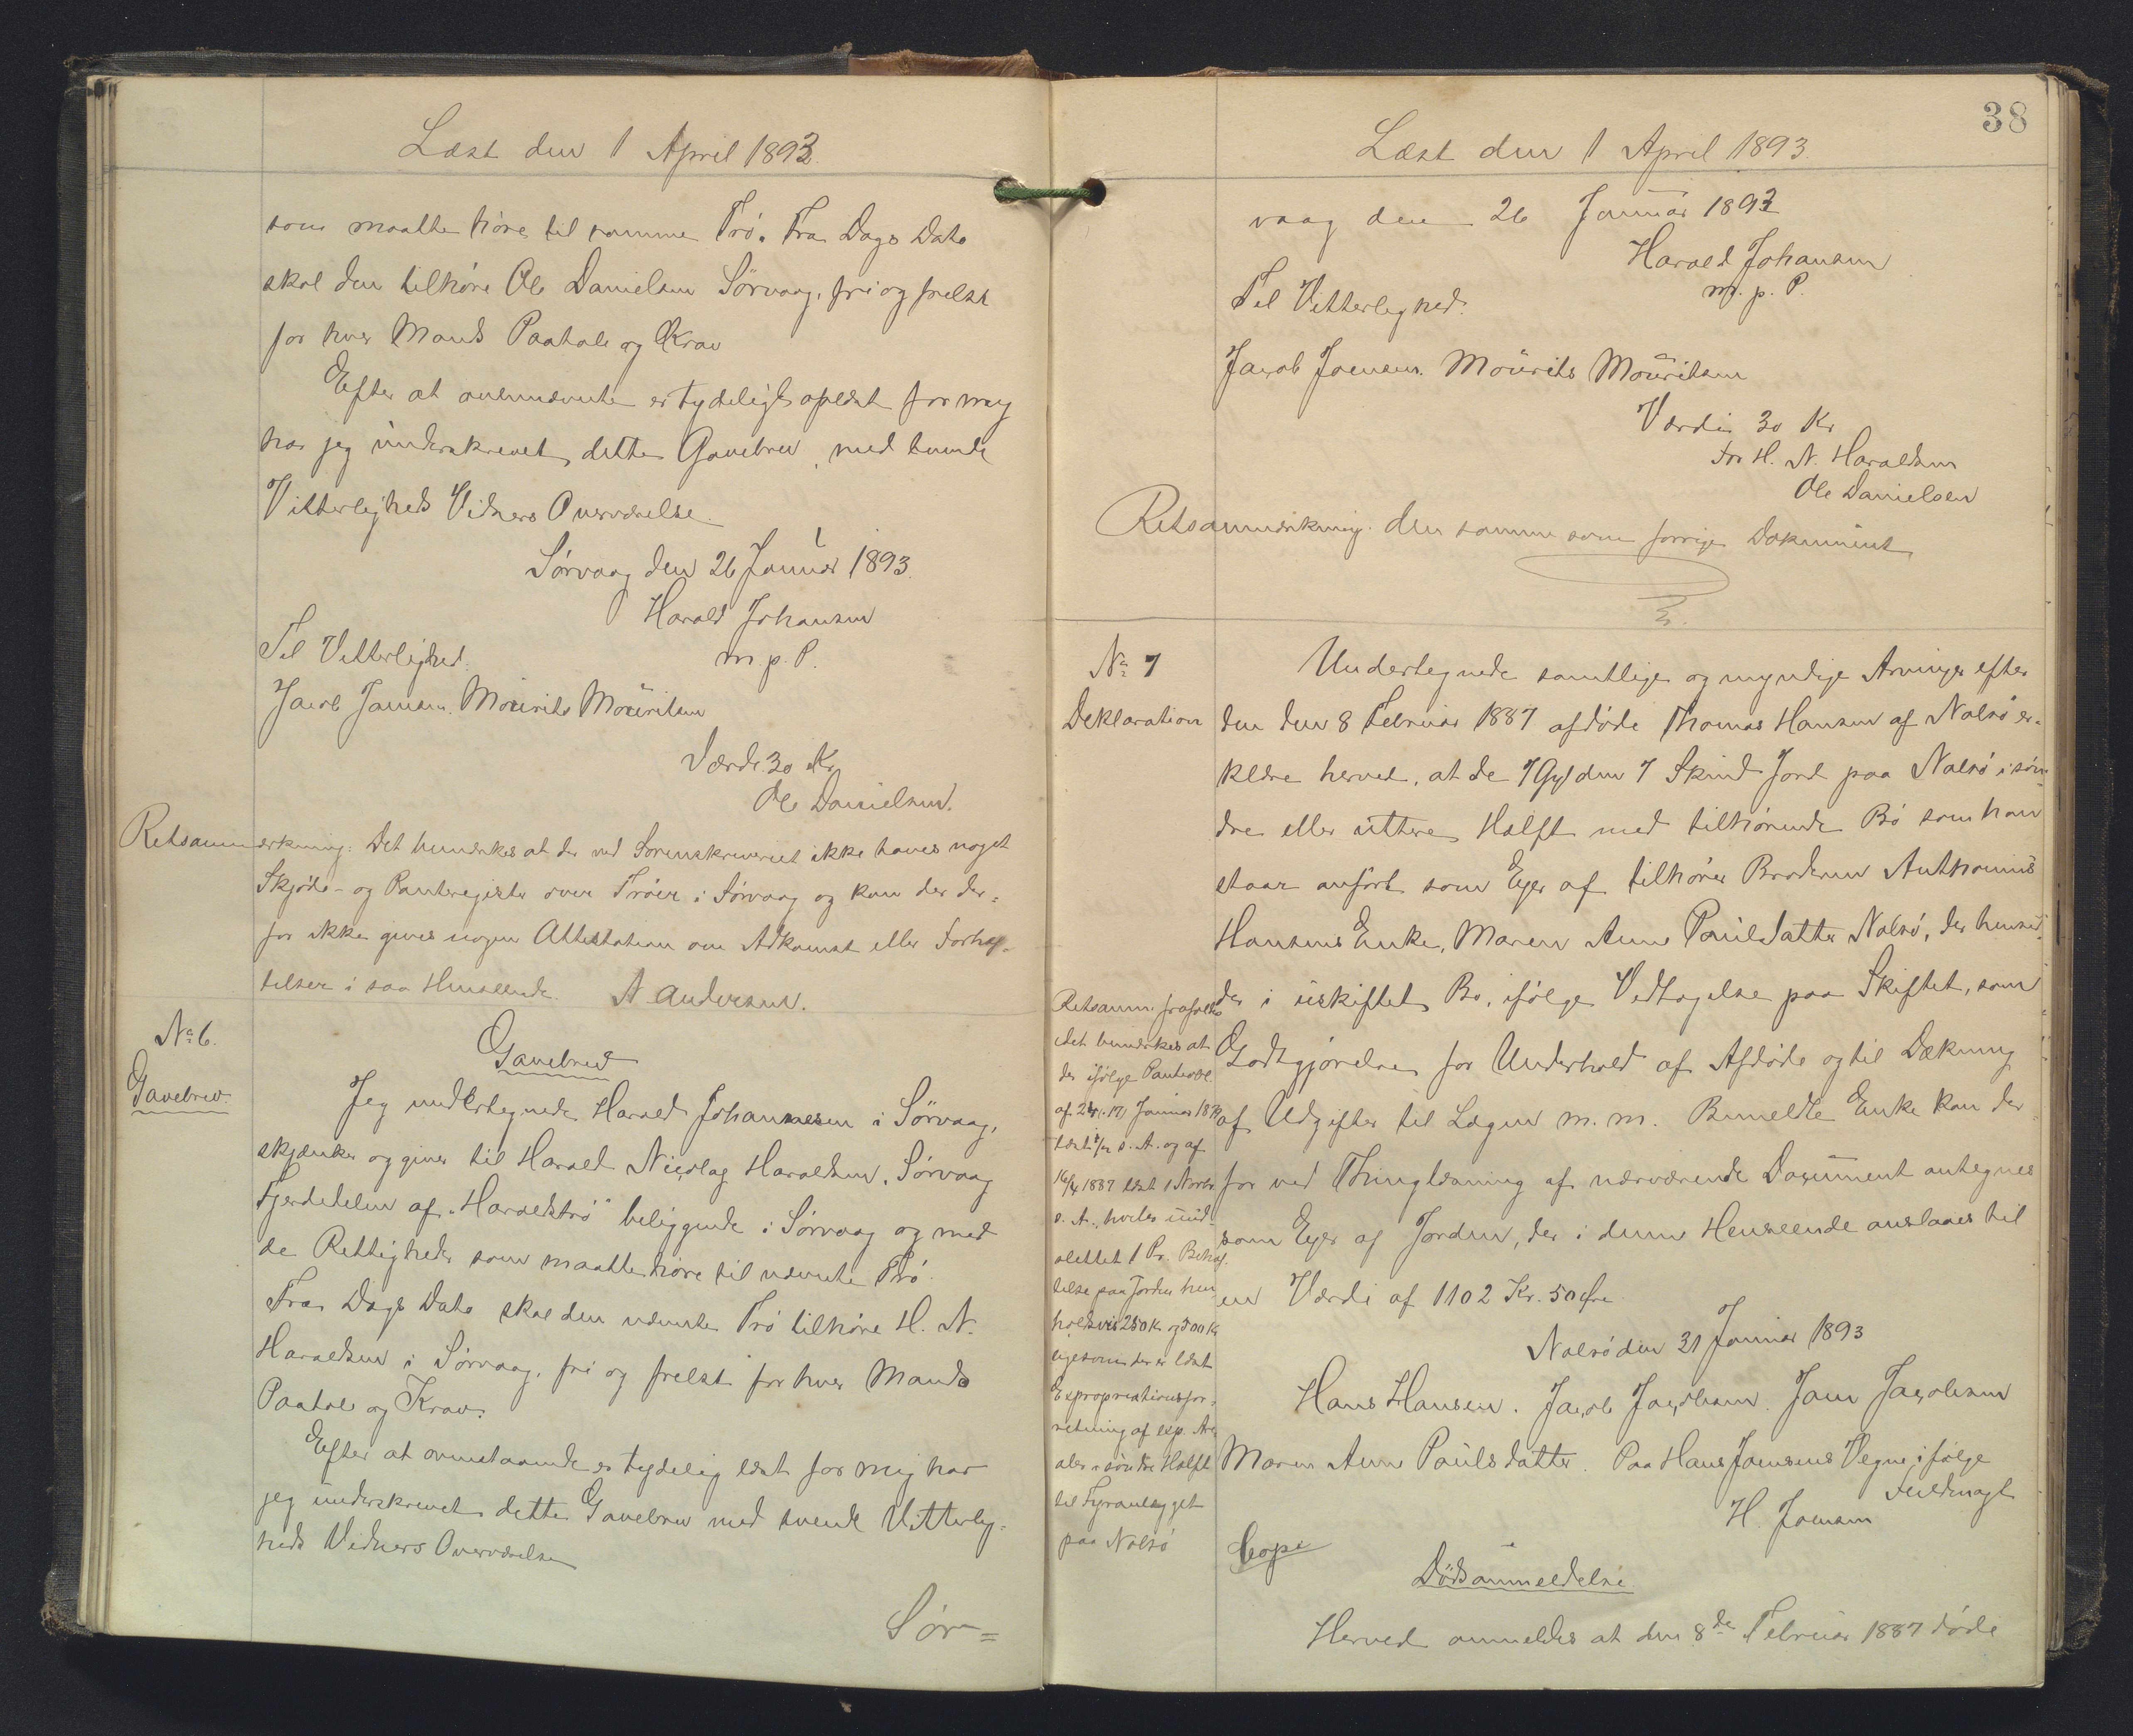 Læst den 1 April 1893.
som maatte høre til samme Trö. Fra Dags Dato
skal den tilhøre Ole Danielsen Sörvaag, fri og frelst
for hver Mands Paatale og Krav
Efter at ovennævnte er tydeligt oplæst for mig
har jeg underskrevet dette Gavebrev, med tvende
Vitterligheds Vidners Overværelse.
Sörvaag den 26 Januar 1893.
Harald Johansen
m. p. P.
Til Vitterlighed:
Jacob Joensen. Mourits Mouritsen
Værdi 30 Kr
Ole Danielsen.
Retsanmærkning: Det bemærkes at der ved Sorenskriveriet ikke haves noget
Skjöde- og Panteregister over Tröer i Sörvaag og kan der der-
for ikke gives nogen Attestation om Adkomst eller Forhæf-
telser i saa Henseende. A Andersen.
No 6.
Gavebrev.
Gavebrev
Jeg undertegnede Harald Johannesen i Sörvaag,
skjænker og giver til Harald Nicolag Haraldsen, Sörvaag
Fjerdedelen af "Haraldströ" beliggende i Sörvaag og med
de Rettigheder som maatte høre til nævnte Trö.
Fra Dags Dato skal den nævnte Trö tilhøre H. N.
Haraldsen i Sörvaag, fri og frelst for hver Mands
Paatale og Krav.
Efter at ovenstaaende er tydelig læst for mig har
jeg underskrevet dette Gavebrev med tvende Vitterlig-
heds Vidners Overværelse
Sör=
38
Læst den 1 April 1893.
vaag den 26 Januar 1893
Harald Johansen
m. p. P.
Til Vitterlighed:
Jacob Joensen. Mourits Mouritsen
Værdi 30 Kr
For H. N. Haraldsen
Ole Danielsen
Retsanmærkning: den samme som forrige Dokument
No 7
Deklaration
Undertegnede samtlige og myndige Arvinger efter
den den 8 Februar 1887 afdöde Thomas Hansen af Nolsö er-
klære herved, at de 7 Gylden 7 Skind Jord paa Nolsö i søn
dre eller yttere Halft med tilhørende Bö som han
staar anført som Eger af tilhører Broderen Anthonius
Hansens Enke, Maren Anne Pouls datter Nolsö, der hensid-
der i uskiftet Bo, ifølge Vedtagelse paa Skiftet, som
Godtgjørelse for Underhold af Afdöde og til Dækning
af Udgifter til Lægen m. m. Bemeldte Enke kan der-
for ved Thinglæsning af nærværende Document antegnes
som Eger af Jorden, der i denne Henseende anslaaes til
en Værdi af 1102 Kr. 50 Øre
Nolsö den 31 Januar 1893
Hans Hansen. Jacob Jacobsen. Joen Jacobsen
Maren Anne Poulsdatter. Paa Hans Joensens Vegne ifølge
Fuldmagt
H. Joensen
Retsanm.
det bemærkes at
der ifølge Panteobl
af 24 (17) Januar
læst s. A. og af
1887 læst 1 Novbr
s. A., hviler uud-
slettet 1 Pr. Behæf-
telse paa Jorden hen
holdsvis 250 Kr og 500 Kr
ligesom der er læst
Expropriationsfor-
retning af exp. Are
aler söndre Halft
til Fyranlægget
paa Nolsö
Copi
Dödsanmeldelse
Herved anmeldes at den 8de Februar 1887 döde